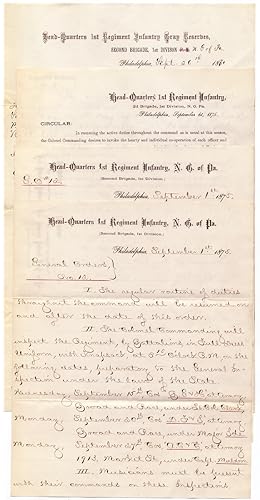 Head-Quarters 1st Regiment Infantry Gray Reserves,
SECOND BRIGADE, 1st DIVISION N. G. of Pa.
Philadelphia, Sept. 26th 18
Head-Quarters 1st Regiment Infantry,
2d Brigade, 1st Division, N. G. Pa.
Philadelphia, September 1st, 1875.
CIRCULAR:
In resuming the active duties throughout the command as is usual at this season,
the Colonel Commanding desires to invoke the hearty and individual co-operation of each officer and
Head-Quarters 1st Regiment Infantry, N. G. of Pa.
(Second Brigade, 1st Division,)
G.O. No 12.
Philadelphia, September 1st 1875.
Head-Quarters 1st Regiment Infantry, N. G. of Pa.
(Second Brigade, 1st Division,)
Philadelphia, September 1st 1875
General Orders,
No. 12.
I. The regular routine of duties
throughout the command will be resumed on
and after the date of this order.
II. The Colonel Commanding will
inspect the Regiment, by Battalions in Full Dress
Uniform, with Knapsacks, at 8 O'Clock P.M. on the
following dates, preparatory to the General In-
spection under the law of the State.
Wednesday September 15th Cos at armory
Broad and Race, under Lt. Col.
Monday September 20th Cos D. at armory
Broad and Race, under Major
Monday September 27th Cos at armory
1913 Market, under Capt.
III. Musicians must be present
with their commands on these Inspections